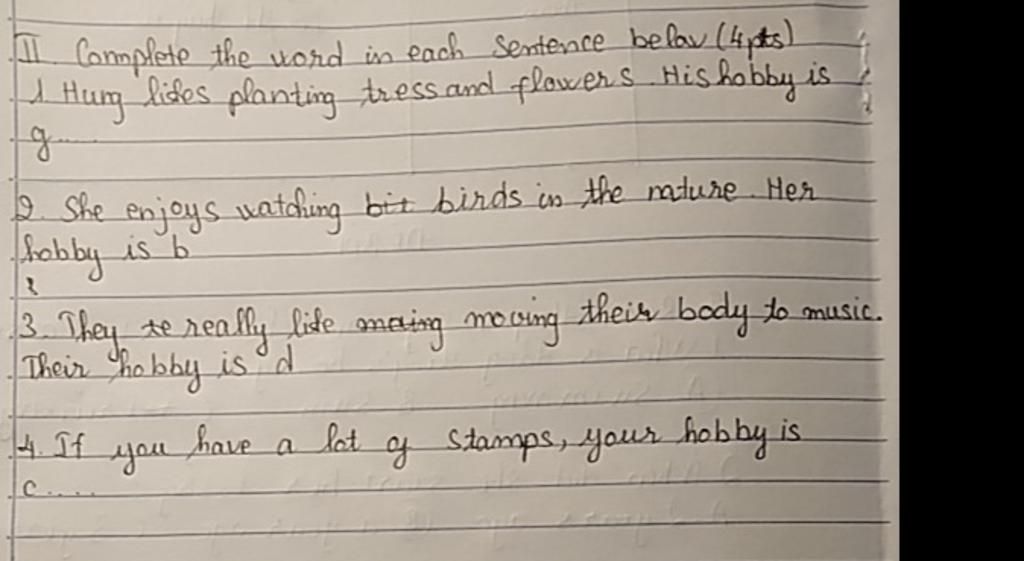 II Complete the word in each sentence below (4pts)
1 Hung likes planting tress and flowers. His hobby is
g.....
2. She enjoys watching bit birds in the nature. Her
hobby is b
3. They te really like moving their body to music.
Their hobby is d
4. If you have a lot of stamps, your hobby is
c.....